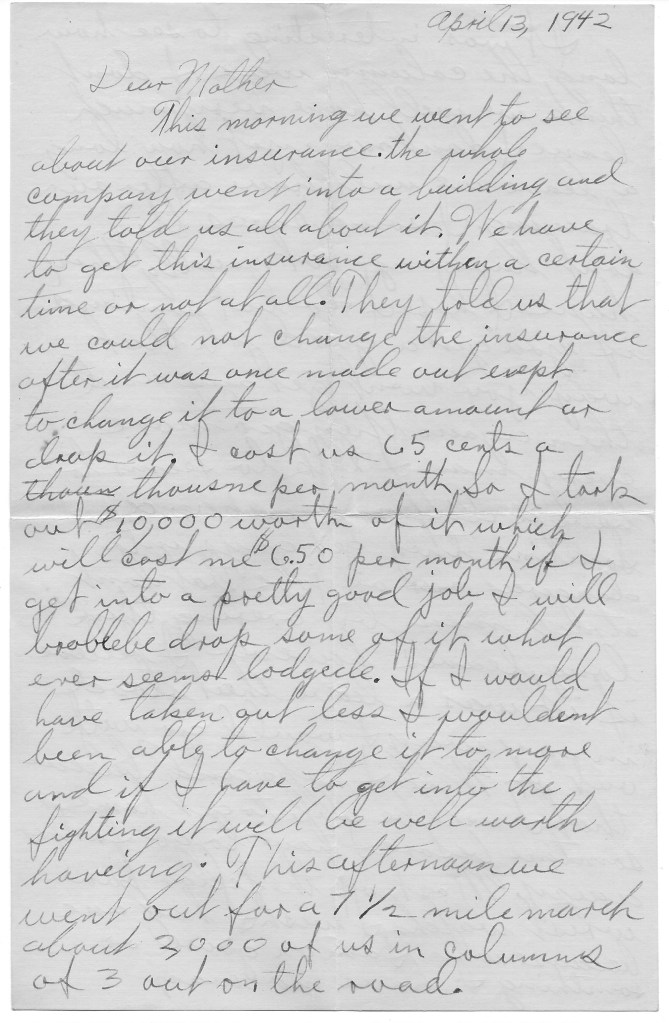 April 13, 1942
Dear Mother
This morning we went to see
about our insurance. the whole
company went into a building and
they told us all about it. We have
to get this insurance within a certain
time or not at all. They told us that
we could not change the insurance
after it was once made out exept
to change it to a lower amount or
drop it. I cost us 65 cents a
thoun thousne per month So I took
out $10,000 worth of it which
will cost me $6.50 per month if I
get into a pretty good job I will
broblebe drop some of it what
ever seems lodgecle. If I would
have taken out less I wouldent
been able to change it to more
and if I have to get into the
fighting it will be well worth
haveing. This afternoon we
went out for a 7 1/2 mile march
about 3,000 of us in columns
of 3 out on the road.